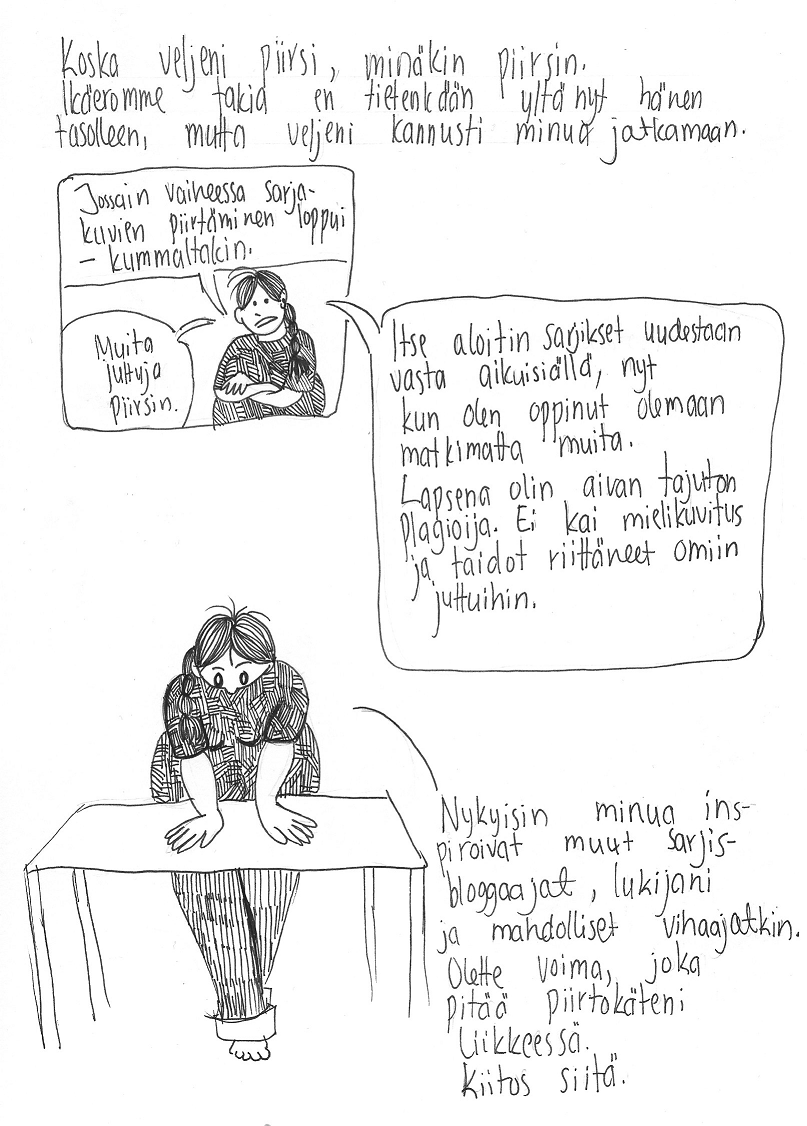 Koska veljeni piirsi, minäkin piirsin.
Ikäeromme takia en tietenkään yltänyt hänen
tasolleen, mutta veljeni kannusti minua jatkamaan.
Jossain vaiheessa sarja-
kuvien piirtäminen loppui
- kummaltakin.
Muita
juttuja
piirsin.
Itse aloitin sarjikset uudestaan
vasta aikuisiällä, nyt
kun olen oppinut olemaan
matkimatta muita.
Lapsena olin aivan tajuton
plagioija. Ei kai mielikuvitus
ja taidot riittäneet omiin
juttuihin.
Nykyisin minua ins-
piroivat muut sarjis-
bloggaajat, lukijani
ja mahdolliset vihaajatkin.
Olette voima, joka
pitää piirtokäteni
liikkeessä.
Kiitos siitä.